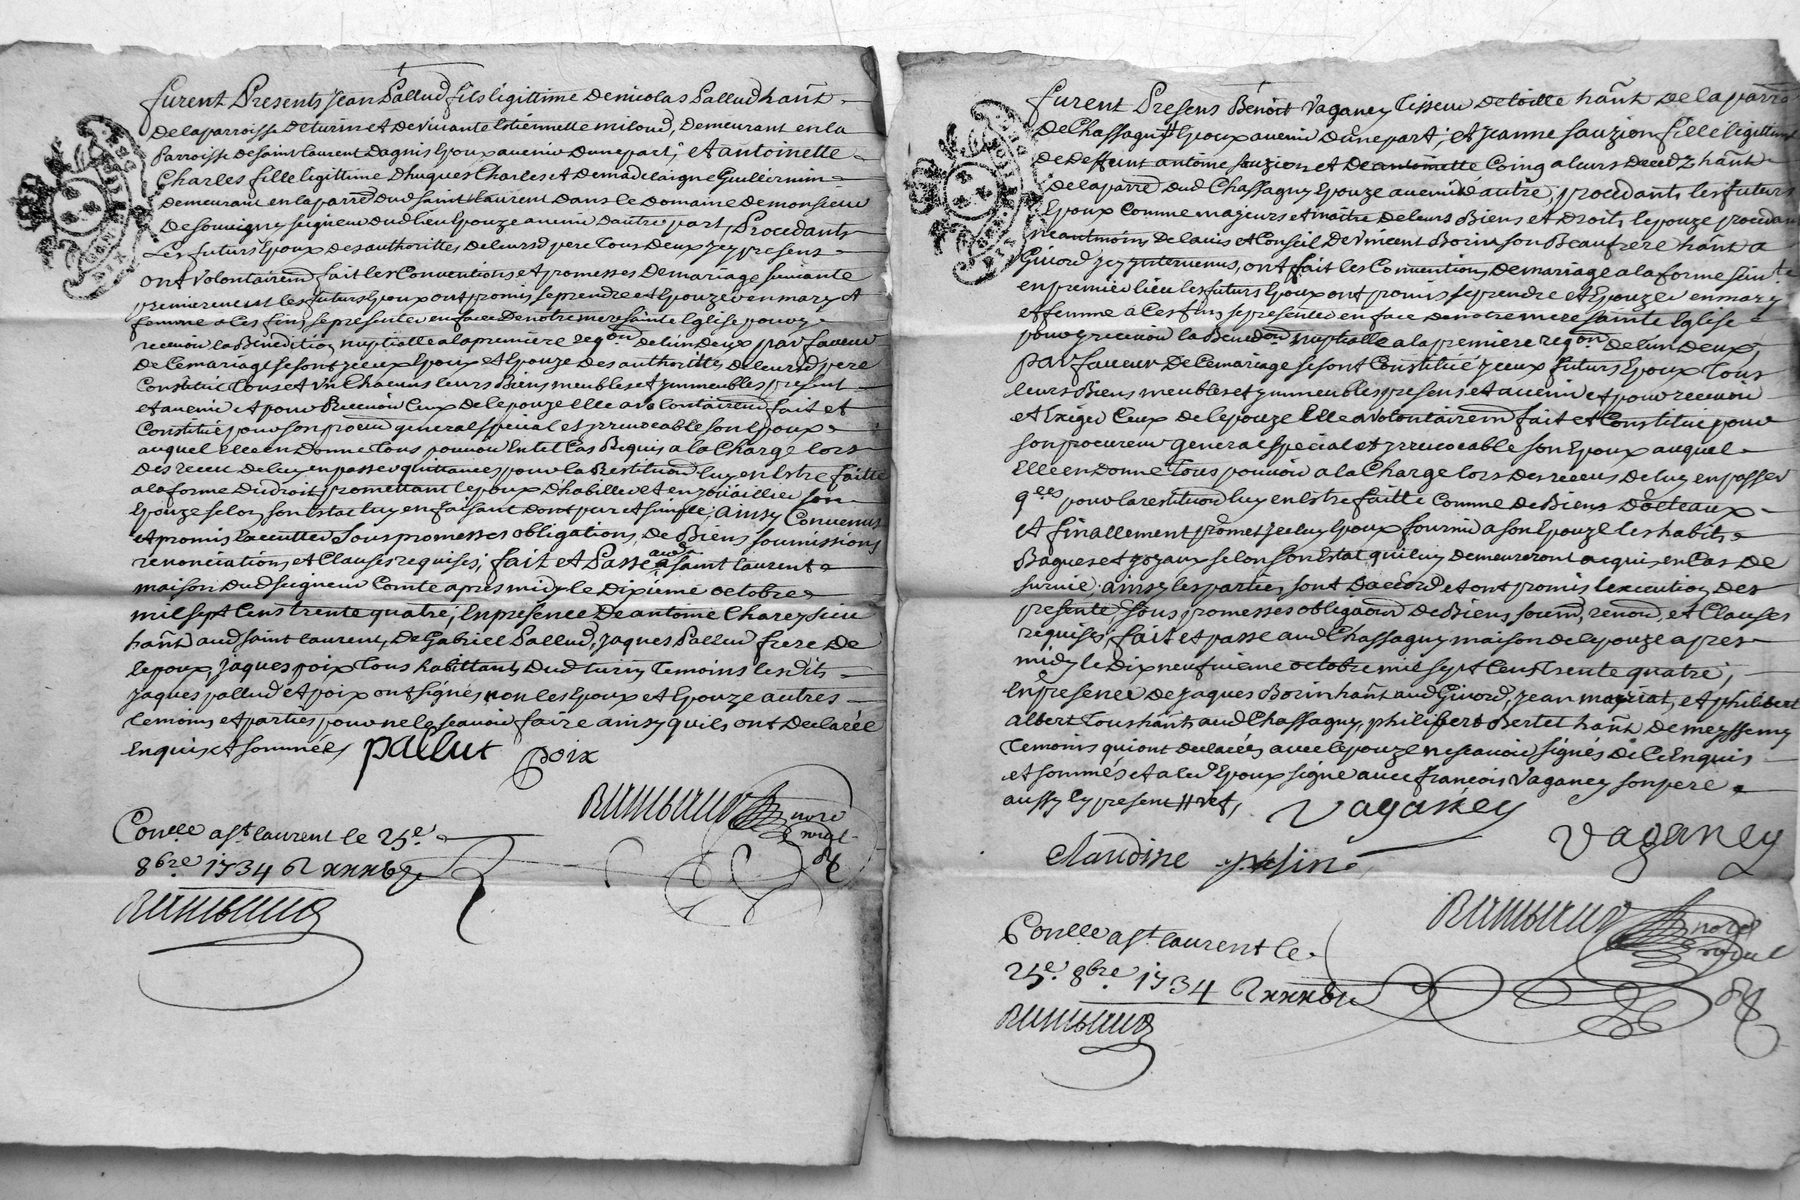 furent Presents Jean Pallud fils legittime de nicolas Pallud hañt
de la parroisse de turin et de vivante Estiennette miloud, demeurant en la
Parroisse de saint laurent dagnis Epoux avenir dune part, et antoinette
Charles fille legittime d'hugues Charles et de madelaigne Guillermin
demeurant en la parre dud saint laurent dans le domaine de monsieur
de souvigny seigneur dud lieu Epouze avenir dautre part, Procedants
Les futurs Epoux des authorittés de leursd pere tous deux jcy presens
ont volontairemt fait les Conventions et promesses de mariage suivante
premierement les futurs Epoux ont promis se prendre et Epouzer en mary et
femme a ces fins se presenter en face de notre mere sainte Eglise pour y
recevoir la Benediction nuptialle a la premiere reqon de lun deux par faveur
de ce mariage se sont jceux Epoux et Epouze des authorittés de leursd pere
Constitué tous et un Chacuns leurs Biens meubles et jmmeubles present
et avenir et pour Recevoir Ceux de lepouze elle a volontairemt fait et
Constitué pour son procur general special et jrrevocable son Epoux
auquel elle en donne tous pouvoir En tel Cas Requis a la Charge lors
des receu de luy en passer quittances pour la Restitution luy en Estre faitte
a la forme du droit, promettant lepoux d'habiller et enjouailler son
Epouze selon son Estat luy en faisant dont pur et simple, ainsy Convenus
et promis Executter sous promesses obligations de Biens soumissions
renonciations et Clauses requises, fait et Passé aud saint laurent
maison dud seigneur Comte apres midy le dixieme octobre
mil sept Cens trente quatre, En presence de antoine Chareysieu
hañt aud saint laurent, de Gabriel Pallud, jaques Pallud frere de
lepoux, jaques poix tous habittants dud turin temoins lesdits
jaques pallud et poix ont signés, non les Epoux et Epouze autres
temoins et parties pour ne le scavoir faire ainsy quils ont declarée
Enquis et sommées pallut poix
Rambaud nore royal
Conllé a st laurent le 25e
8bre 1734
Rambaud
furent Presens Benoit Vaganey Tisseur de toille hañt de la parre
de Chassagny Epoux avenir dune part, et jeanne sauzion fille legittime
de deffunt antoine sauzion et de antoinette Coing a leurs decedz hañt
de la parre dud Chassagny Epouze avenir d'autre, procedants les futurs
Epoux comme majeurs et maitre de leurs Biens et droits, lepouze procedant
neantmoins de lavis et Conseil de vincent Borin son Beaufrere hañt a
Givord jcy jntervenus, ont fait les Conventions de mariage a la forme suivte
en premier lieu les futurs Epoux ont promis se prendre et Epouzer en mary
et femme a ces fins se presenter en face de notre mere sainte Eglise
pour y recevoir la Benedon nuptialle a la premiere reqon de lun deux,
par faveur de ce mariage se sont Constitué jceux futurs Epoux tous
leurs Biens meubles et jmmeubles presens et avenir et pour recevoir
et Exiger Ceux de lepouze Elle a volontairemt fait et Constitué pour
son procureur general special et jrrevocable son Epoux auquel
Elle en donne tous pouvoir a la Charge lors des receus de luy en passer
qces pour la restitution luy en Estre faitte comme de Biens dotteaux
et finallement promet jceluy Epoux fournir a son Epouze les habits
Bagues et joyaux selon son Estat qui luy demeureront acquis en Cas de
survie, ainsy les parties sont d'accord et ont promis lexecution des
presente sous promesses obligaon de Biens, soumon, renon, et Clauses
requises, fait et passe aud Chassagny maison de lepouze apres
midy le dix neufvieme octobre mil sept Cens trente quatre,
En presence de jaques Borin hañt aud Givord, jean et philibert
albert tous hañts aud Chassagny, philibert Bertet hañt de meyssemy
temoins qui ont declarées avec lepouze ne scavoir signés de ce Enquis
et sommés et a led Epoux signe avec francois Vaganey son pere
aussy cy present
Vaganey
Vaganey
Claudine
Rambaud nore royal
Conllé a st laurent le
25e 8bre 1734
Rambaud